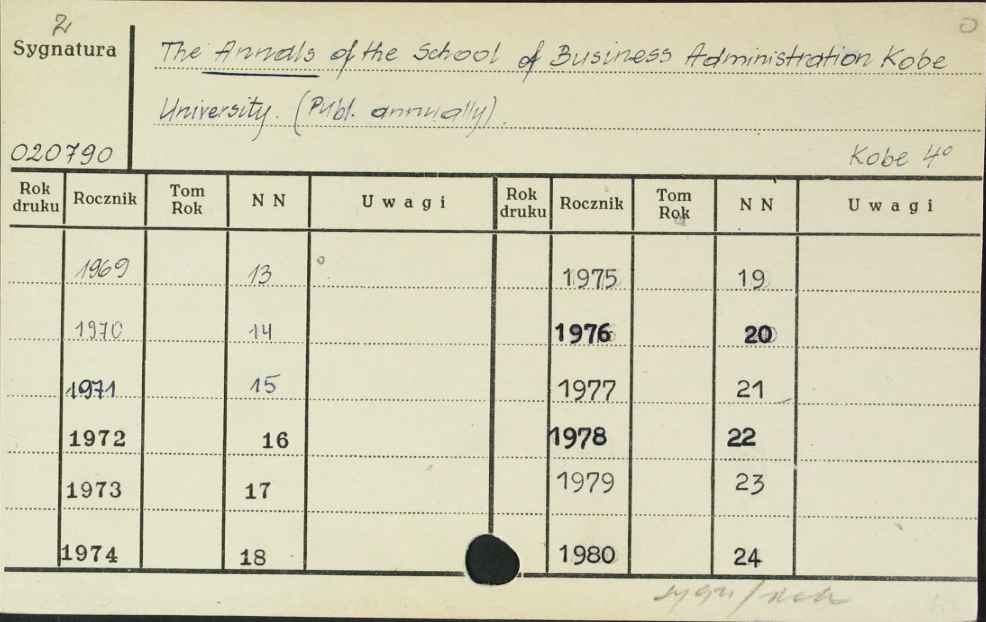 2
Sygnatura
The Annals of the School of Business Administration Kobe
University. (Publ. annually).
020790
Kobe 4°
Rok druku Rocznik Tom Rok N N Uwagi Rok druku Rocznik Tom Rok N N Uwagi
1969 13 1975 19
1970 14 1976 20
1971 15 1977 21
1972 16 1978 22
1973 17 1979 23
1974 18 1980 24